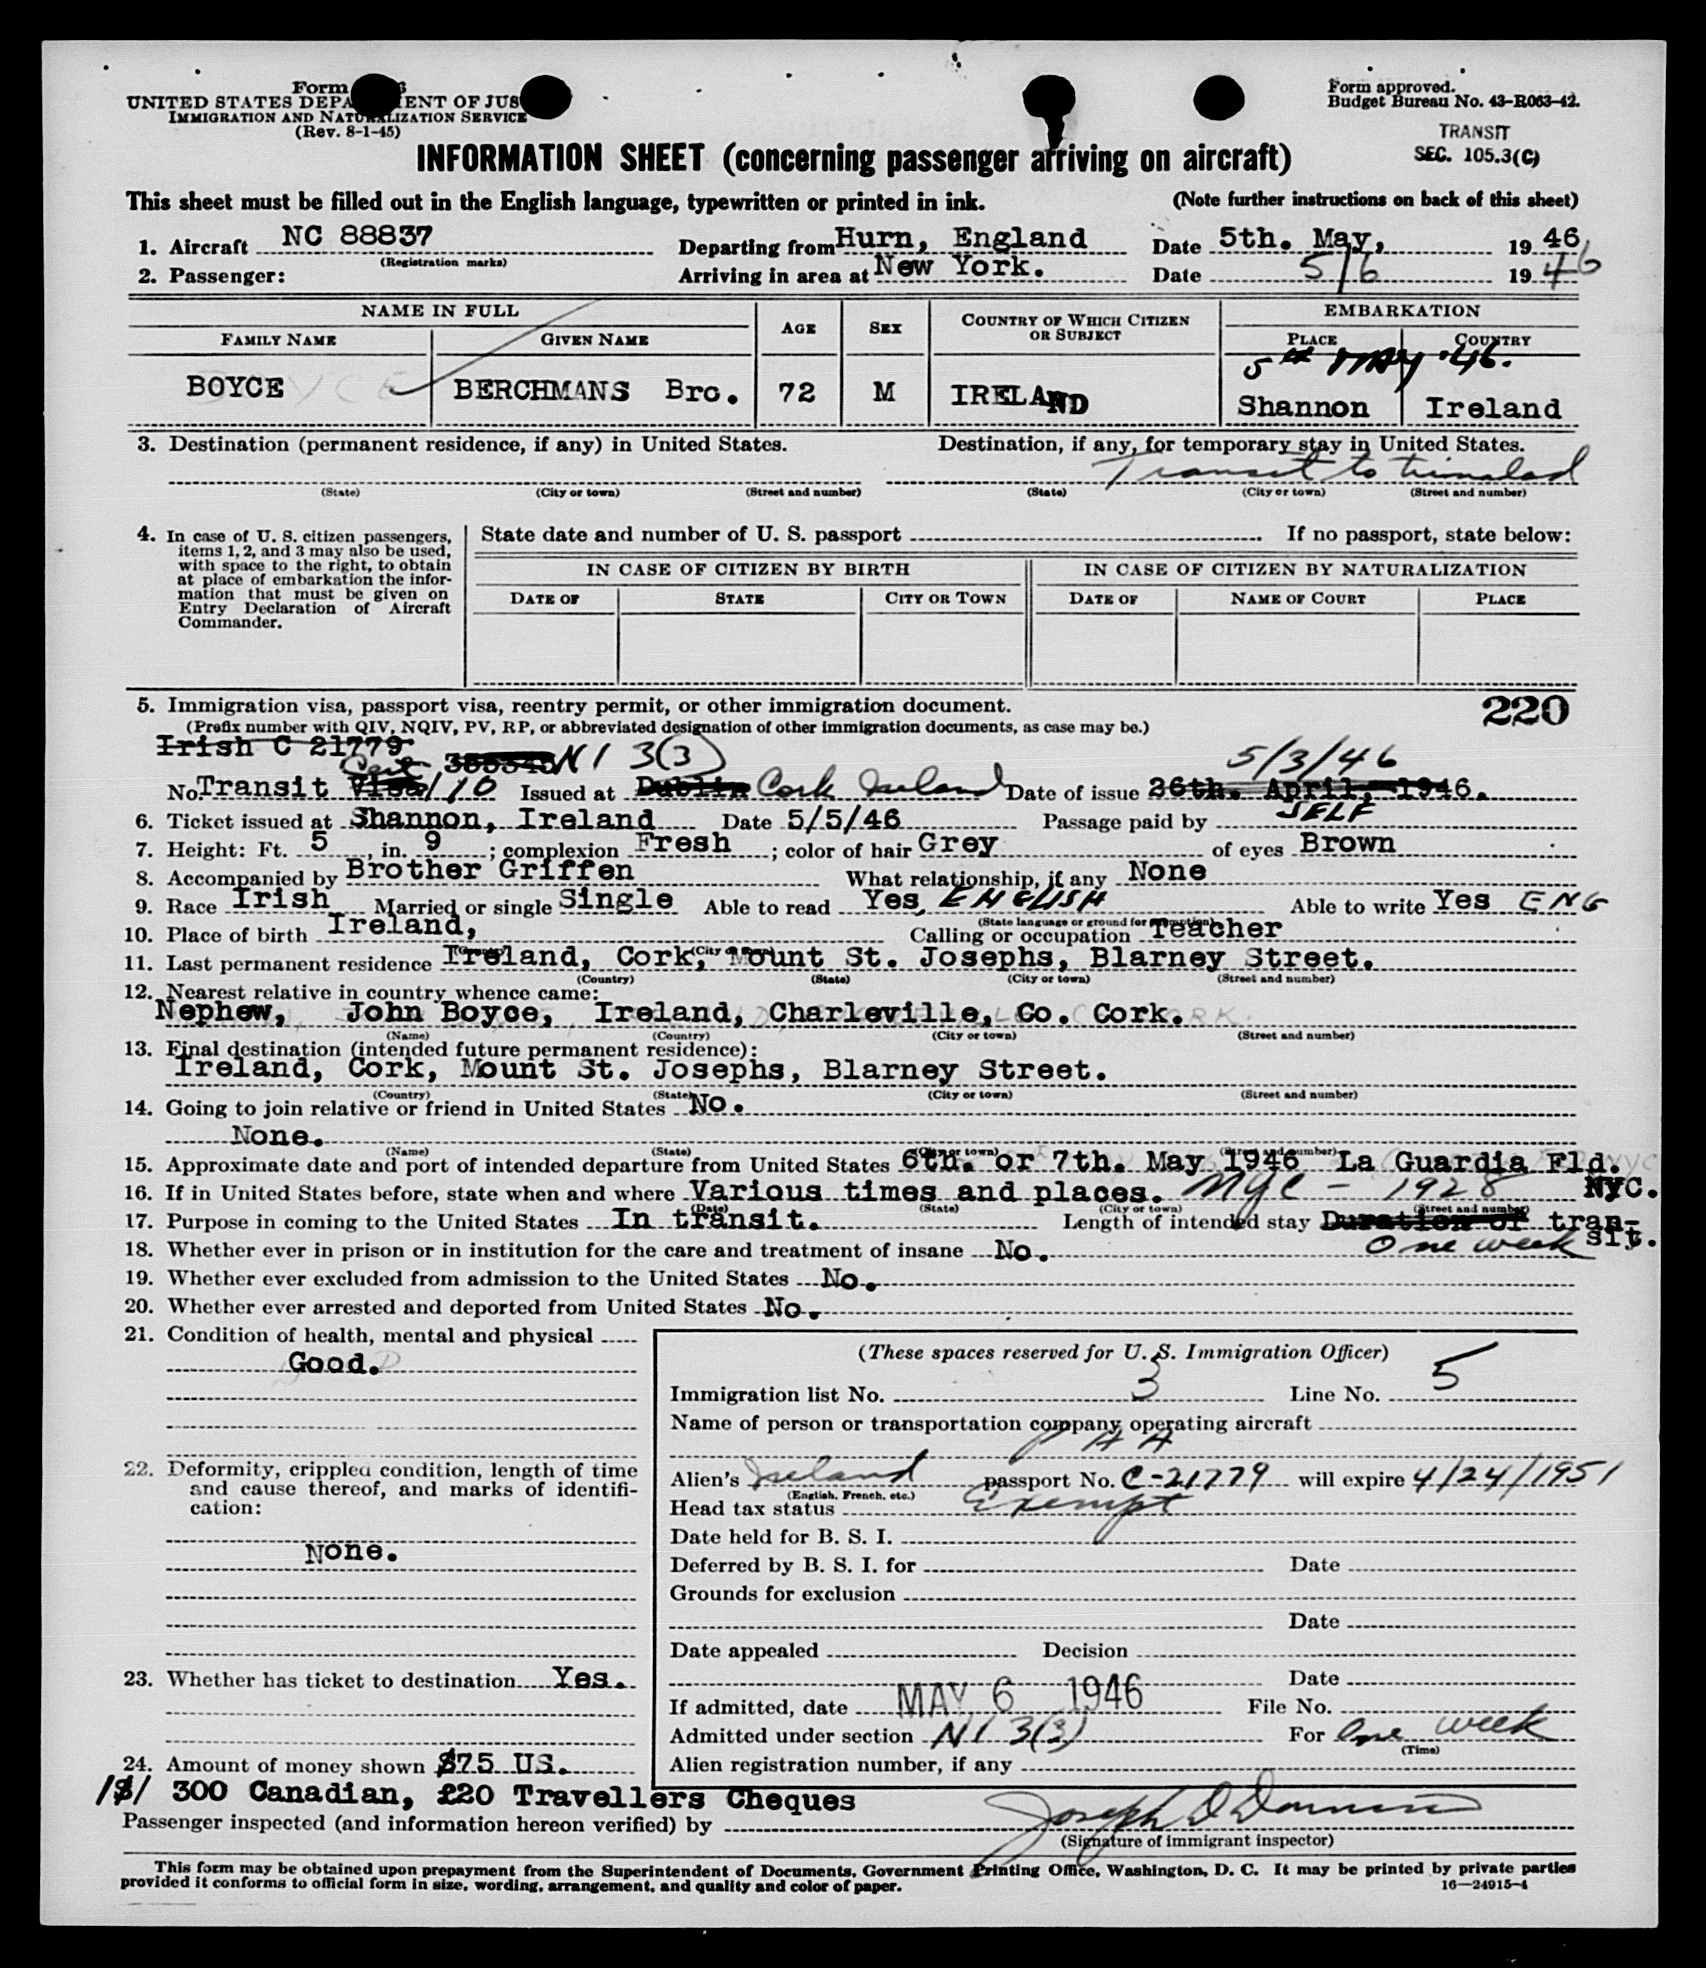 Form
UNITED STATES DEPA ENT OF JUS
IMMIGRATION AND NATURALIZATION SERVICE
(Rev. 8-1-45)
Form approved.
Budget Bureau No. 43-R063-42.
TRANSIT
SEC. 105.3(C)
INFORMATION SHEET (concerning passenger arriving on aircraft)
This sheet must be filled out in the English language, typewritten or printed in ink. (Note further instructions on back of this sheet)
1. Aircraft NC 88837 Departing from Hurn, England Date 5th. May, 19 46
(Registration marks)
2. Passenger: Arriving in area at New York. Date 5/6 19 46
NAME IN FULL AGE SEX COUNTRY OF WHICH CITIZEN OR SUBJECT EMBARKATION
FAMILY NAME GIVEN NAME PLACE COUNTRY
5th MAY '46.
BOYCE BERCHMANS Bro. 72 M IRELAND Shannon Ireland
3. Destination (permanent residence, if any) in United States. Destination, if any, for temporary stay in United States.
Transit to Trinidad
(State) (City or town) (Street and number) (State) (City or town) (Street and number)
4. In case of U. S. citizen passengers, items 1, 2, and 3 may also be used, with space to the right, to obtain at place of embarkation the information that must be given on Entry Declaration of Aircraft Commander.
State date and number of U. S. passport If no passport, state below:
IN CASE OF CITIZEN BY BIRTH IN CASE OF CITIZEN BY NATURALIZATION
DATE OF STATE CITY OR TOWN DATE OF NAME OF COURT PLACE
5. Immigration visa, passport visa, reentry permit, or other immigration document. 220
(Prefix number with QIV, NQIV, PV, RP, or abbreviated designation of other immigration documents, as case may be.)
Irish C 21779 NI 3(3) 5/3/46
No. Transit Visa Cert 110 Issued at Dublin Cork Ireland Date of issue 26th. April, 1946.
6. Ticket issued at Shannon, Ireland Date 5/5/46 Passage paid by SELF
7. Height: Ft. 5, in. 9; complexion Fresh; color of hair Grey of eyes Brown
8. Accompanied by Brother Griffen What relationship, if any None
9. Race Irish Married or single Single Able to read Yes, ENGLISH Able to write Yes ENG
(State language or ground for exemption)
10. Place of birth Ireland, Calling or occupation Teacher
(Country) (City or town)
11. Last permanent residence Ireland, Cork, Mount St. Josephs, Blarney Street.
(Country) (State) (City or town) (Street and number)
12. Nearest relative in country whence came:
Nephew, John Boyce, Ireland, Charleville, Co. Cork.
(Name) (Country) (City or town) (Street and number)
13. Final destination (intended future permanent residence):
Ireland, Cork, Mount St. Josephs, Blarney Street.
(Country) (State) (City or town) (Street and number)
14. Going to join relative or friend in United States No.
None.
(Name) (State) (City or town) (Street and number)
15. Approximate date and port of intended departure from United States 6th. or 7th. May 1946 La Guardia Fld. NYC.
16. If in United States before, state when and where Various times and places. NYC - 1928
(Date) (State) (City or town) (Street and number)
17. Purpose in coming to the United States In transit. Length of intended stay Duration of transit. One week
18. Whether ever in prison or in institution for the care and treatment of insane No.
19. Whether ever excluded from admission to the United States No.
20. Whether ever arrested and deported from United States No.
21. Condition of health, mental and physical
Good.
(These spaces reserved for U. S. Immigration Officer)
Immigration list No. 3 Line No. 5
Name of person or transportation company operating aircraft
PAA
22. Deformity, crippled condition, length of time and cause thereof, and marks of identification:
None.
Alien's Ireland passport No. C-21779 will expire 4/24/1951
(English, French, etc.)
Head tax status Exempt
Date held for B. S. I.
Deferred by B. S. I. for Date
Grounds for exclusion
Date
Date appealed Decision
23. Whether has ticket to destination Yes. Date
If admitted, date MAY 6 1946 File No.
Admitted under section NI 3(3) For One week
(Time)
24. Amount of money shown $75 US. Alien registration number, if any
/$/ 300 Canadian, £20 Travellers Cheques
Passenger inspected (and information hereon verified) by Joseph D
(Signature of immigrant inspector)
This form may be obtained upon prepayment from the Superintendent of Documents, Government Printing Office, Washington, D. C. It may be printed by private parties
provided it conforms to official form in size, wording, arrangement, and quality and color of paper. 16—24915-4